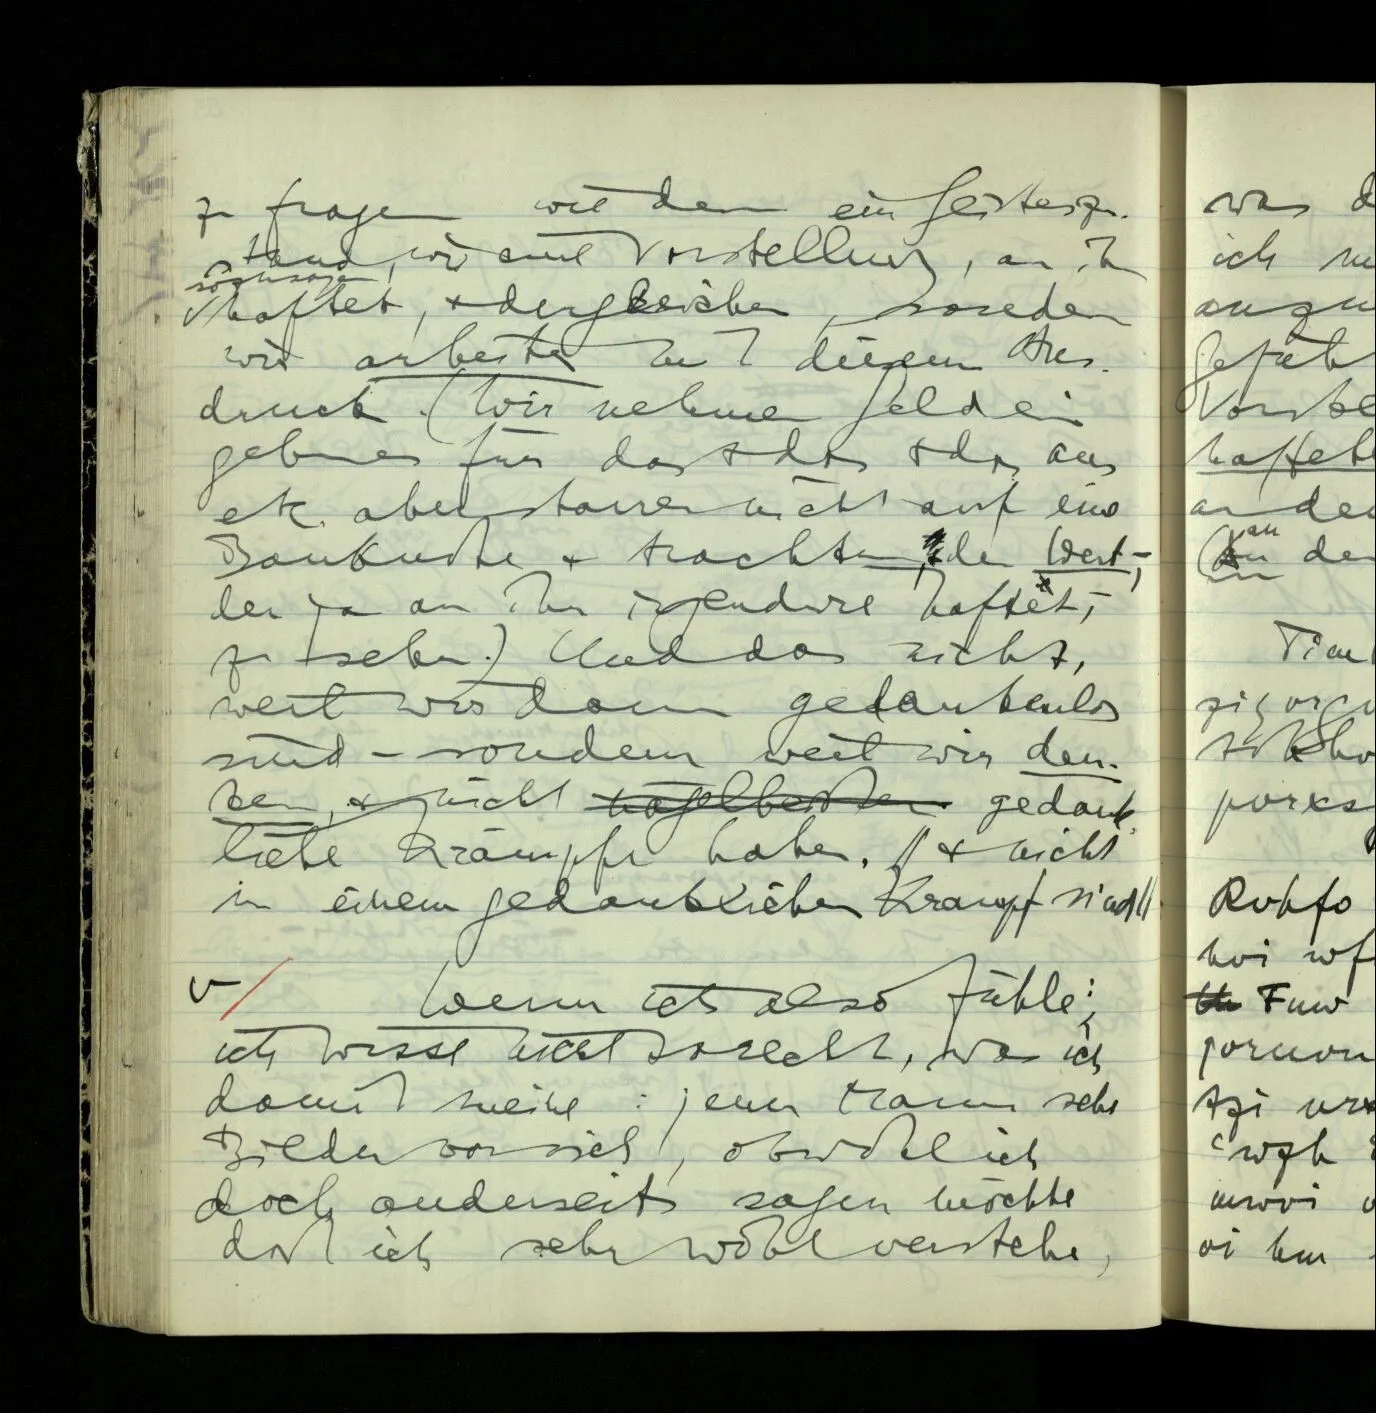 zu fragen wie denn ein Geisteszu-
stand, wie eine Vorstellung, an ihm
sozusagen
haftet, & dergleichen, sondern
wir arbeiten mit diesem Aus-
druck. (Wir nehmen Geld ein
geben es für das & das & das aus
etc. aber starren nicht auf eine
Banknote & trachten, den Wert,
der ja an ihr irgendwie haftet,
zu sehen.) Und das nicht,
weil wir dann gedankenlos
sind – sondern weil wir den-
ken, & nicht gedank-
liche Krämpfe haben. // & nicht
in einem gedanklichen Krampf sind //
Wenn ich also fühle;
ich wisse nicht so recht, was ich
damit meine: jener Mann sehe
Bilder vor sich, obwohl ich
doch anderseits sagen möchte
daß ich sehr wohl verstehe,
was d
ich
haftete
an den
an
Rohfo
hvi
Fuw